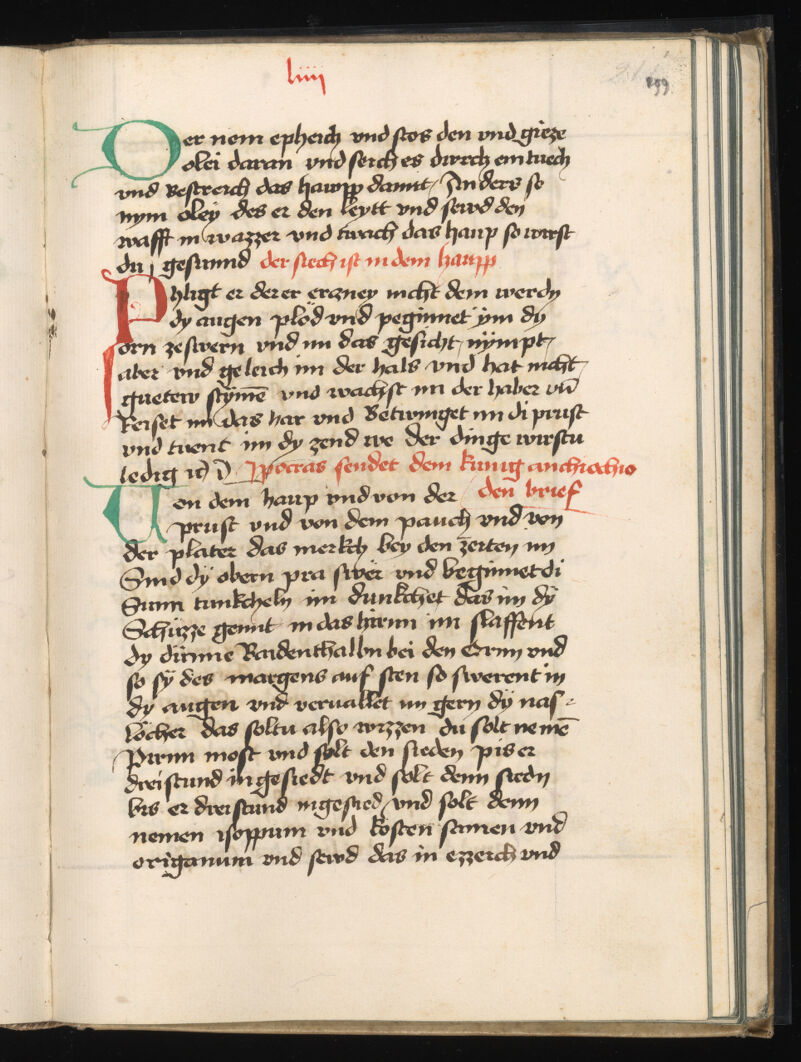 liiij
299
Der nem epheich vnd stos den vnd gieze
olei daran vnd seich es durch ein tuech
vnd bestreich das haupp damit / Anders so
nym oley des er den leytt vnd sewd den
wafft in wazzer vnd twach das haup so wirst
du gesunnd der siech ist in dem haupp
Phligt er der erczney nicht dem werdn
dy augen plöd vnd peginnet ym dy
orn ze swern vnd im das gesicht nympt
aber vnd geleich im der hals vnd hat nicht
gueten stÿme vnd wachst im der haber vn
Reiset im das har vnd Betwinget im di prust
vnd tuent im dy zend we der dinge wirstu
ledig Ypocras sendet dem kunig anchiochio
den brief
Uon dem haup vnd von der
prust vnd von dem pauch vnd von
der plater das merkch bey den zeiten im
Sind dÿ obern pra swer vnd beginnet di
Sunn tunkcheln im dunkchet das im dÿ
Schüzze gennt in das hirnn im slaffent
dy dünne Baidenthalbn bei den Ornn vnd
so sÿ des margens auf sten so swerent in
dy augen vnd veruallet im gern dÿ nas-
löcher das soltu also wizzen du solt neme
Pirnn most vnd solt den sieden pis er
dreistund ingesiedt vnd solt denn siedn
bis er dreistund ingesied vnd solt denn
nemen isoppum vnd kosten samen vnd
origanum vnd sewd das in ezzeich vnd